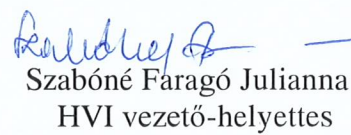 Szabóné Faragó Julianna
HVI vezető-helyettes